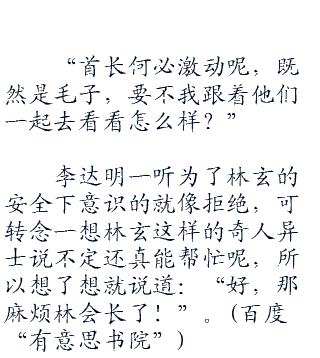 “首长何必激动呢，既
然是毛子，要不我跟着他们
一起去看看怎么样？”
李达明一听为了林玄的
安全下意识的就像拒绝，可
转念一想林玄这样的奇人异
士说不定还真能帮忙呢，所
以想了想就说道：“好，那
麻烦林会长了！”。(百度
“有意思书院”)